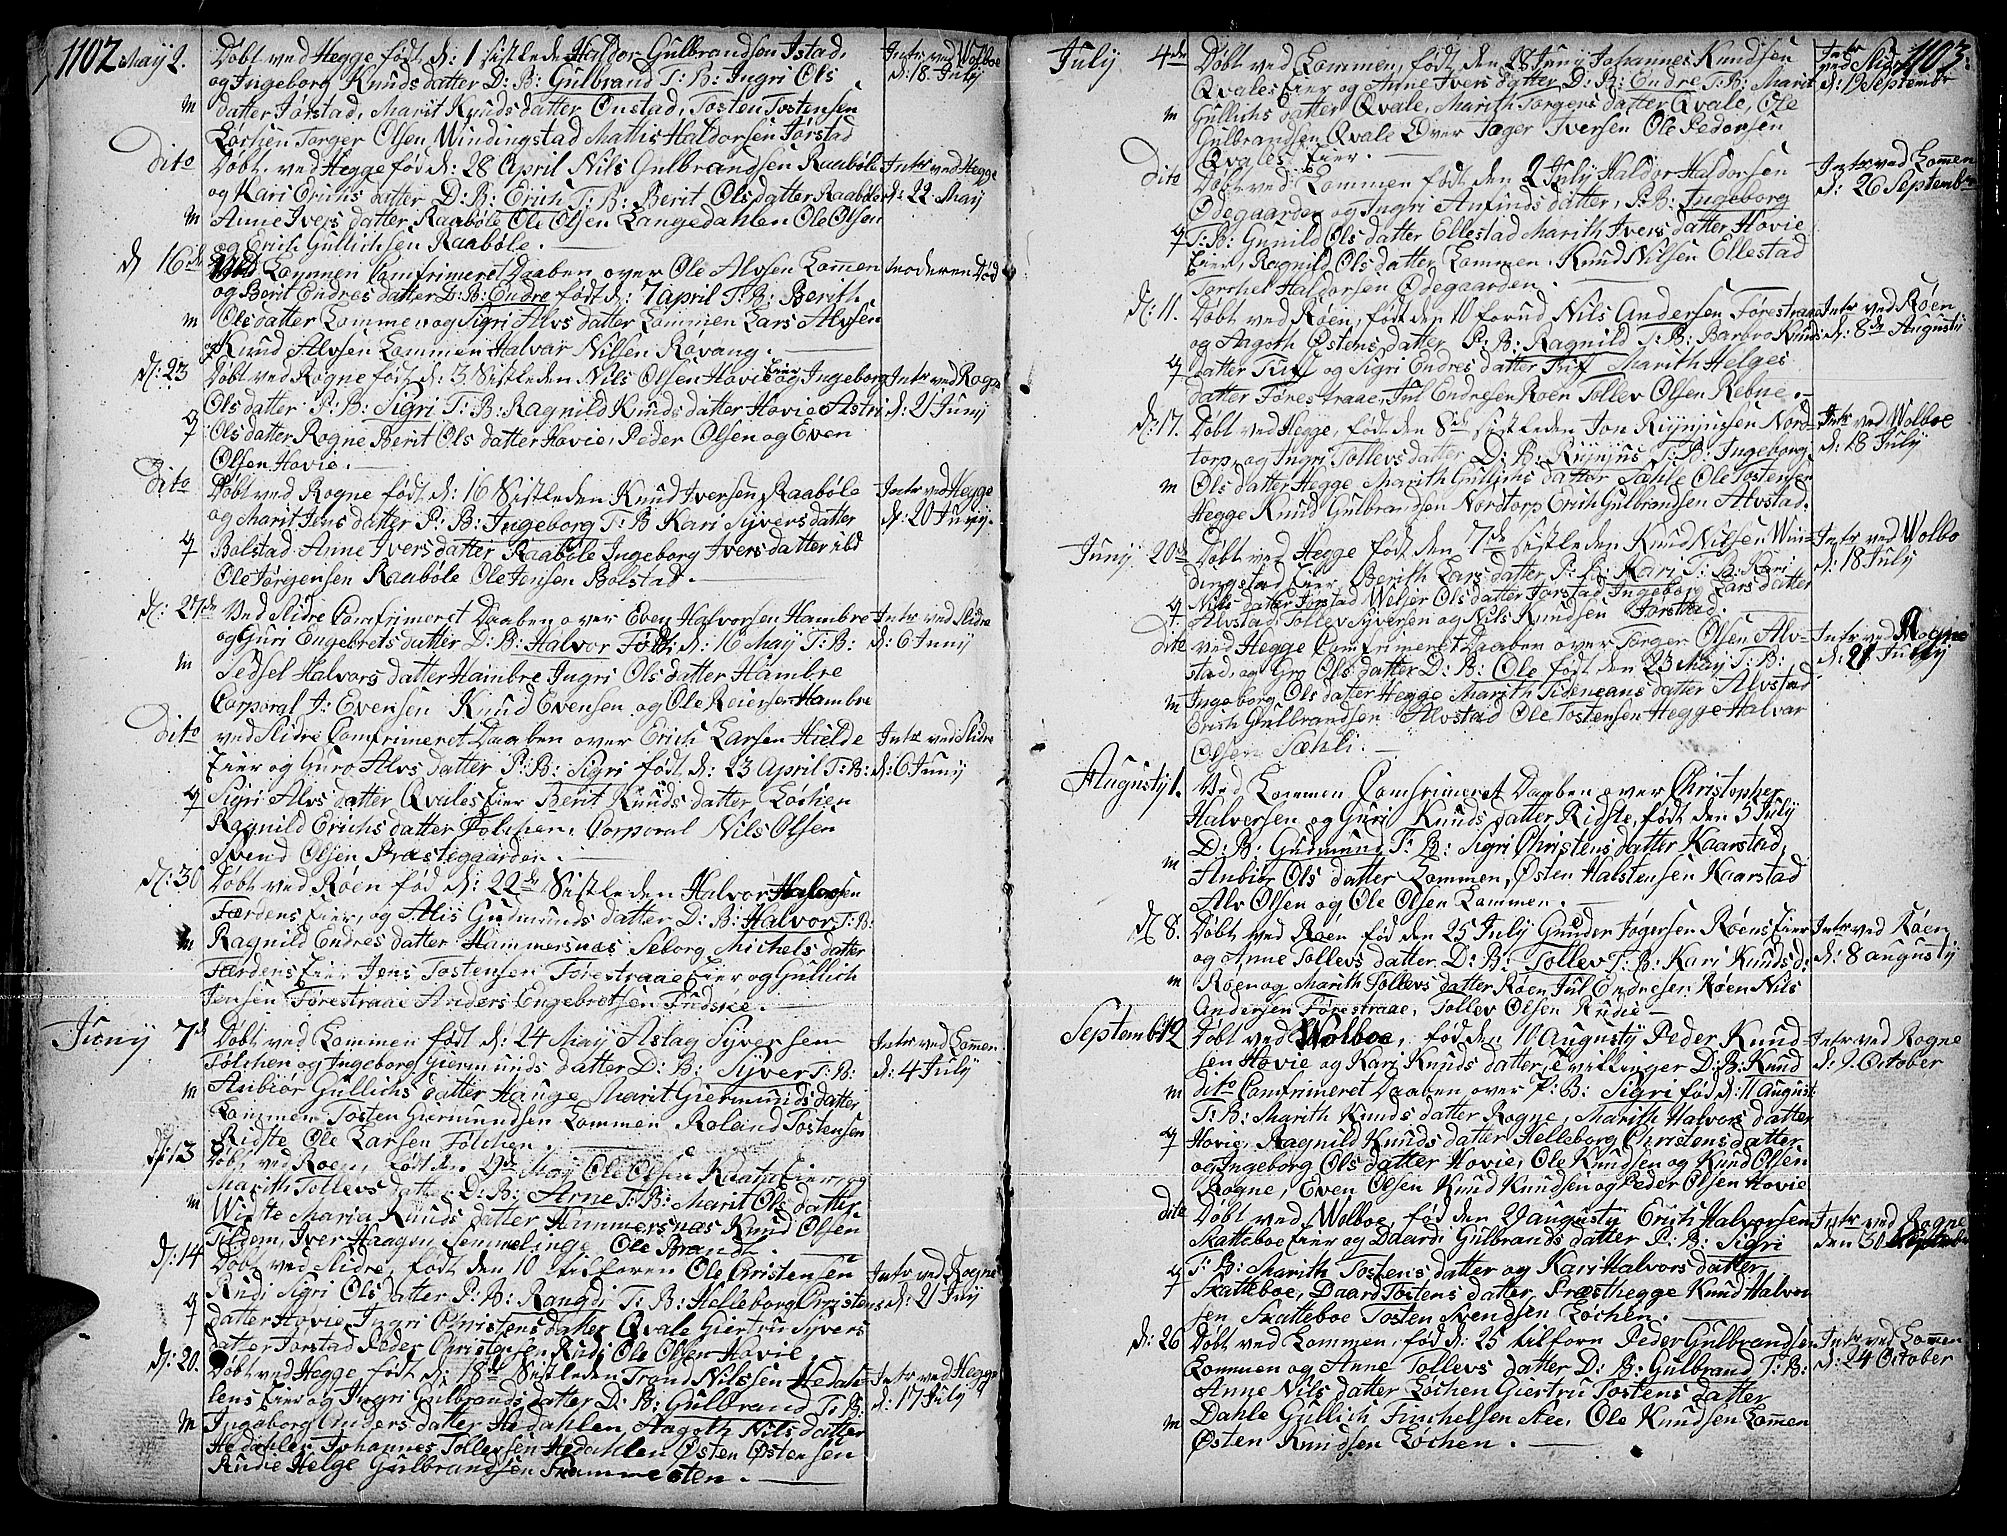 1102
May 2. Døbt ved Hegge født d: 1 sistleden Haldor Gulbrandsen Istad,
og Ingeborg Knuds datter D: B: Gulbrand T: B: Ingri Ols
m datter Jørstad, Marit Knuds datter Onstad, Tosten Tostensen
Løchen Torger Olsen Windingstad Mattis Haldorsen Jørstad
Intr ved Wolboe
d: 18 July
Dito Døbt ved Hegge fød d: 28 April Nils Gulbrandsen Raabøle
og Kari Erichs datter D: B: Erich T: B: Berit Ols datter Raabøle
m Anne Ivers datter Raabøle Ole Olsen Langedahlen Ole Olsen
og Erich Gullichsen Raabøle.
Intr ved Hegge
d: 22 May
d 16de Ved Lommen Comfrimeret Daaben over Ole Alvsen Lommen
og Berit Endres datter D: B: Endre født d: 7 April T: B: Berith
m Ols datter Lommen og Sigri Alvs datter Lommen Lars Alvsen
og Knud Alvsen Lommen Halvar Nilsen Rovang.
Moderen Død
d: 23 Døbt ved Rogne født d: 3 Sistleden Nils Olsen Hovie Eier og Ingeborg
Ols datter P: B: Sigri T: B: Ragnild Knuds datter Hovie Astri
q Ols datter Rogne Berit Ols datter Hovie, Peder Olsen og Even
Olsen Hovie.
Intr ved Rogne
d: 21 Juny
Dito Døbt ved Rogne født d: 16 Sistleden Knud Iversen Raabøle
og Marit Jens datter P: B: Ingeborg T: B Kari Syvers datter
q Bolstad Anne Ivers datter Raabøle Ingeborg Ivers datter ibd
Ole Jørgensen Raabøle Ole Jensen Bolstad.
Intr ved Hegge
d: 20 Juny.
d: 27de Ved Slidre Comfrimeret Daaben over Even Halvorsen Hambre
og Guri Engebrets datter D: B: Halvor Født d: 16 May T: B:
m Sedsel Halvors datter Hambre Ingri Ols datter Hambre
Corporal J: Evensen Knud Evensen og Ole Reiersen Hambre
Intr ved Slidre
d: 6 Juny
Dito ved Slidre Comfrimeret Daaben over Erich Larsen Hielde
Eier og Guro Alvs datter P: B: Sigri født d: 23 April T: B:
q Sigri Alvs datter Qvales Eier Berit Knuds datter Løchen
Ragnild Erichs datter Følchen. Corporal Nils Olsen
Svend Olsen Præstegaarden.
Intr ved Slidre
d: 6 Juny
d: 30 Døbt ved Røen fød d: 22de Sistleden Halvor Halvorsen
Færdens Eier, og Alis Gudmunds datter D: B: Halvor T: B:
m Ragnild Endres datter Hammersnæs Seborg Michels datter
Færdens Eier Jens Tostensen Førestraae Eier og Gullich
Jensen Førestraae Anders Engebretsen Fudske.
Juny 7de Døbt ved Lommen født d: 24 May Aslag Syversen
Følchen og Ingeborg Giermunds datter D: B: Syver T: B:
m Anbiør Gullichs datter Hauge Marit Giermunds datter
Lommen Tosten Giermundsen Lommen Roland Tostensen
Ridste Ole Larsen Følchen.
Intr ved Lomen
d: 4 July
d: 13 Døbt ved Røen, født den 9de May Ole Olsen Kaante Eier, og
Marith Tollevs datter D: B: Arne T: B: Marit Ols datter
m Widste Maria Knuds datter Hammersnæs Knud Olsen
Fildem, Iver Haagensen Semmelinge Ole Brandt.
d: 14 Døbt ved Slidre, født den 10 tilforen Ole Christensen
Rudi Sigri Ols datter P: B: Rangdi T: B: Helleborg Christens
q datter Hovie, Ingri Christens datter Qvale Giertru Syvers
datter Jørstad Peder Christensen Rudi Ole Olsen Hovie
Intr ved Rogne
d: 21 July
d: 20. Døbt ved Hegge, født d: 18de Sistleden Trond Nilssen Hedah-
lens Eier og Ingri Gulbrands datter D: B: Gulbrand T: B:
m Ingeborg Anders datter Hedahlen, Aagoth Nils datter
Hedahlen Johannes Tollevsen Hedahlen Østen Østensen
Rudie Helge Gulbrandsen Frammesten.
Intr ved Hegge
d: 17 July
1103
July 4de Døbt ved Lommen, født den 28 Juny Johannes Knudsen
Qvales Eier og Anne Ivers datter D: B: Endre T: B: Marit
m Gullichs datter Qvale, Marith Torgers datter Qvale, Ole
Gulbrandsen Qvale Tager Iversen Ole Pedersen
Qvales Eier.
Intr ved Slidre
d: 19 Septembr
dito Døbt ved Lommen født den 2 July Haldor Haldorsen
Ødegaarden og Ingri Anfinds datter, P: B: Ingeborg
q T: B: Gunild Ols datter Ellestad Marith Ivers datter Hovie
Eier, Ragnild Ols datter Lommen. Knud Nilsen Ellestad
Torchel Haldorsen Ødegaarden.
Intr ved Lomen
d: 26 Septembr
d: 11. Døbt ved Røen, født den 10 forud Nils Andersen Førestraae
og Aagoth Østens datter P: B: Ragnild T: B: Barbro Knuds
q datter Tuf og Sigri Endres datter Tuf Marith Helges
datter Førestraae, Jul Endresen Røen Tollev Olsen Rebne.
Intr ved Røen
d: 8de Augusty
d: 17. Døbt ved Hegge, født den 8de sistleden Jon Rynjusen Nord-
torp, og Ingri Tollevs datter D: B: Rynjus T: B: Ingeborg
m Ols datter Hegge Marith Guljus datter Sæhle Ole Tostensen
Hegge Knud Gulbrandsen Nordtorp Erich Gulbrandsen Alvstad.
Intr ved Wolboe
d: 18 July
Juny 20de Døbt ved Hegge født den 7de sistleden Knud Nilsen Win-
dingstad Eier Berith Lars datter P: B: Kari T: B: Kari
q Nils datter Jørstad Ols datter Jorstad Ingeborg Lars datter
Alvstad Tollev Syversen og Nils Knudsen Jorstad.
Intr ved Wolbo
d: 18 July
dito ved Hegge Comfrimeret Daaben over Torger Olsen Alv-
stad, og Gro Ols datter D: B: Ole født den 23 May T: B:
m Ingeborg Ols datter Hegge Marith datter Alvstad
Erich Gulbrandsen Alvstad Ole Tostensen Hegge Halvar
Olsen Sæhli.
Intr ved Rogne
d: 21 July
Augusty 1. Ved Lommen Comfrimeret Daaben over Christopher
Halversen og Guri Knuds datter Ridste, født den 5 July
m D: B: Gudmund T: B: Sigri Christens datter Kaarstad,
Anbiør Ols datter Lommen, Østen Halstensen Kaarstad
Alv Olsen og Ole Olsen Lommen.
d 8. Døbt ved Røen fød den 25 July Gunder Jøgersen Røens Eier
og Anne Tollevs datter D: B: Tollev T: B: Kari Knuds d:
m Røen og Marith Tollevs datter Røen Jul Endresen Røen Nils
Andersen Førestraae, Tollev Olsen Rudie
Intr ved Røen
d: 8 augusty
Septembr 12 Døbt ved Wolboe, fød den 10 Augusty Peder Knud-
sen Hovie og Kari Knuds datter, Tvillinger D: B: Knud
m dito Comfrimeret Daaben over P: B: Sigri fød d: 11 August:
T: B: Marith Knuds datter Rogne, Marith Halvors datter
q Hovie, Ragnild Knuds datter Helleborg Christens datter
og Ingeborg Ols datter Hovie, Ole Knudsen og Knud Olsen
Rogne, Even Olsen Knud Knudsen og Peder Olsen Hovie
Intr ved Rogne
d: 9 October
dito Døbt ved Wolboe, fød den 29 augusty Erich Halvorsen
Skatteboe Eier og Daardi Gulbrands datter P: B: Sigri
q T: B: Marith Tostens datter og Kari Halvors datter
Skatteboe, Daard Tostens datter Præsthegge Knud Halvor-
sen Skatteboe Tosten Svendsen Løchen.
Intr ved Rogne
den 30 Septembr
d: 26 Døbt ved Lommen, fød d: 25 tilforn Peder Gulbrandsen
Lommen og Anne Tollevs datter D: B: Gulbrand T: B:
Anne Nils datter Løchen Giertru Tostens datter
m Dahle Gullich Finchelsen Aee, Ole Knudsen Lomen
Østen Knudsen Løchen.
Intr ved Lomen
d: 24 October